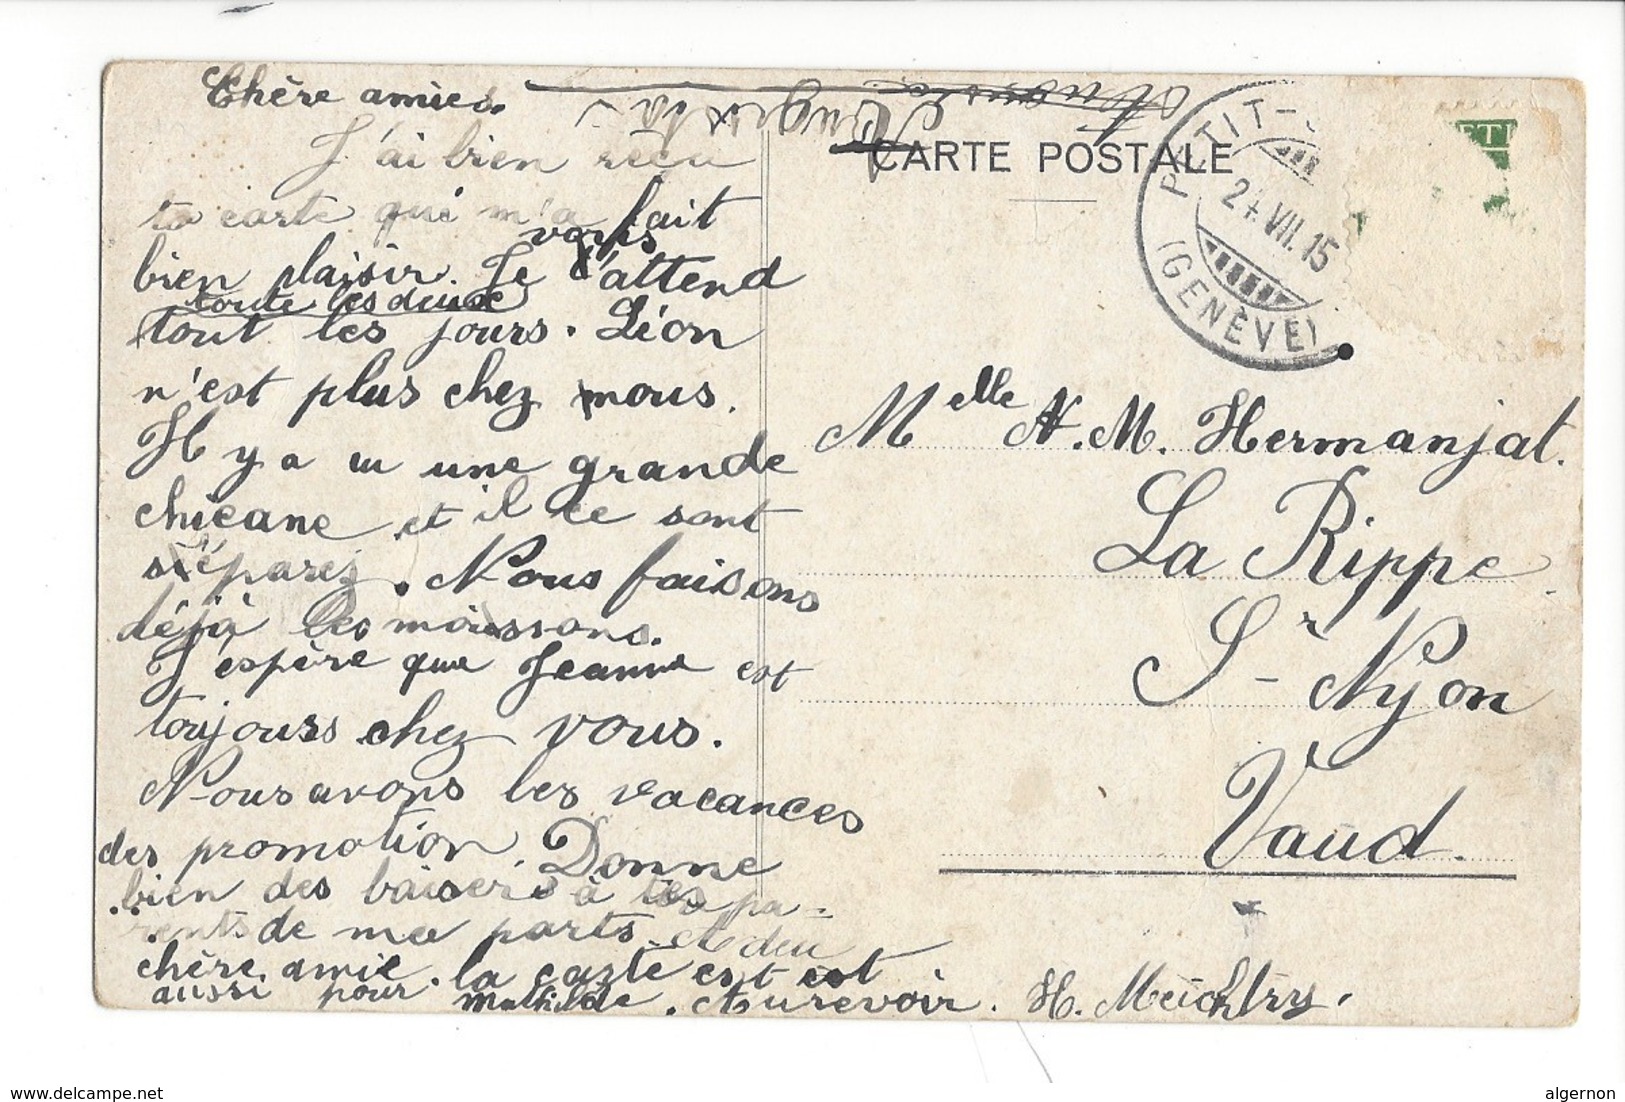 Chère amies.
J'ai bien reçu
ta carte qui m'a fait
vous
bien plaisir. Je t'attend
toute les deuxe
tout les jours. Léon
n'est plus chez nous.
Il y a eu une grande
chicane et il ce sont
séparez. Nous faisons
déjà les moissons.
J'espère que Jeanne est
toujours chez vous.
Nous avons les vacances
des promotion. Donne
bien des baisers à tes pa-
rents de ma parts. A dieu
chère amie. la carte est
aussi pour Mathilde. Aurevoir. H. Meichtry.
Augusta
CARTE POSTALE
PETIT-
24.VII.15
(GENÈVE)
Melle A. M. Hermanjat.
La Rippe
Sr- Nyon
Vaud.
delcampe.net
algernon